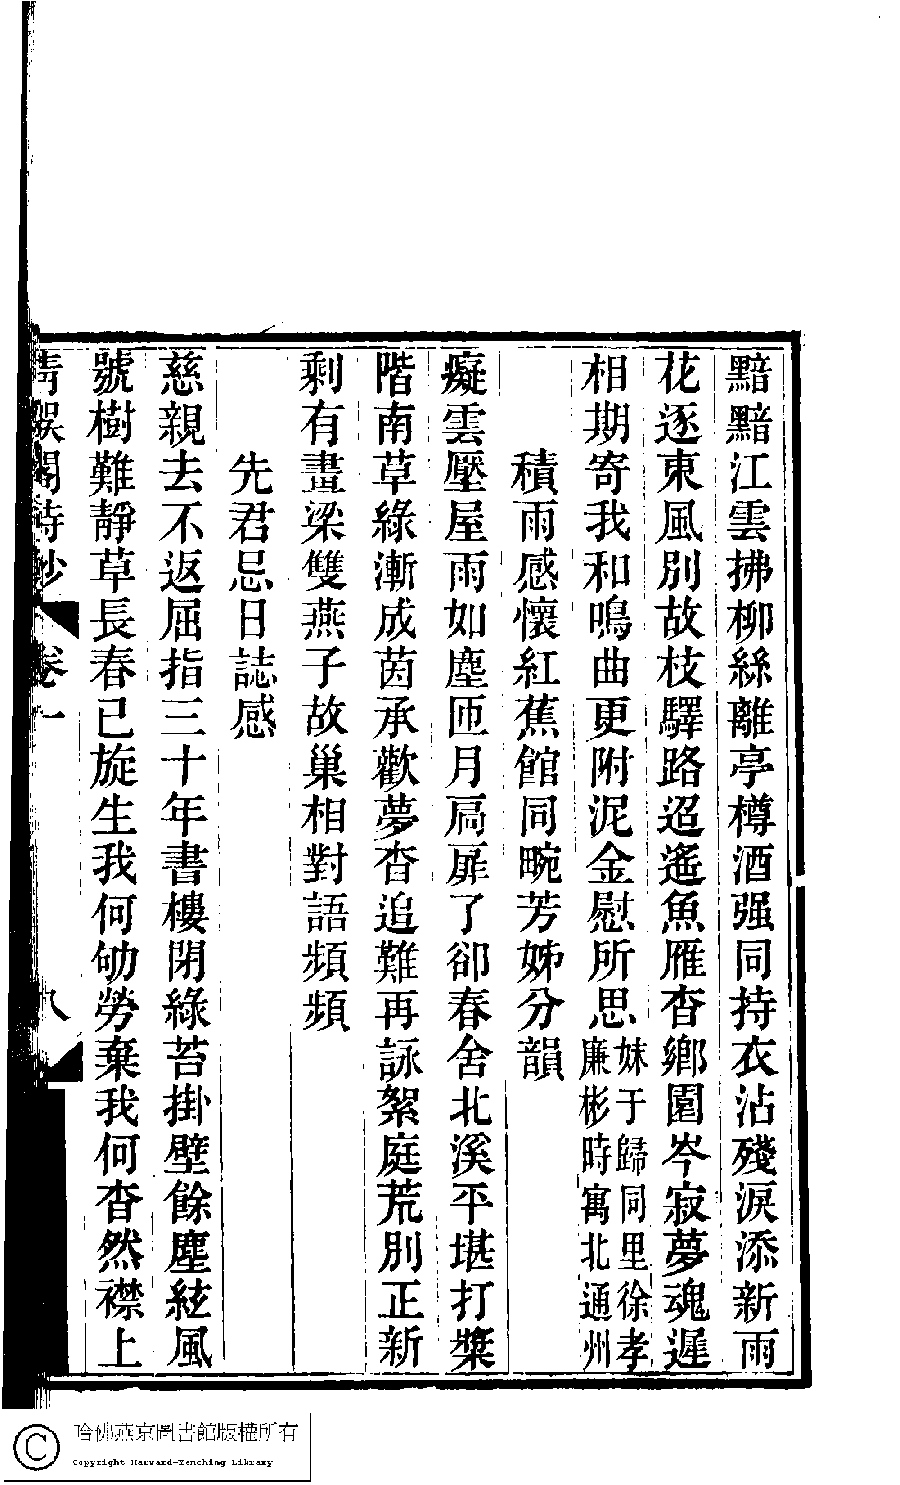 黯黯江雲拂柳絲離亭樽酒强同持衣沾殘淚添新雨
花逐東風別故枝驛路迢遙魚雁杳鄉園岑寂夢魂遲
相期寄我和鳴曲更附泥金慰所思妹于歸同里徐孝廉彬時寓北通州
積雨感懷紅蕉館同畹芳姊分韻
癡雲壓屋雨如塵匝月扃扉了卻春舍北溪平堪打槳
階南草綠漸成茵承歡夢杳追難再詠絮庭荒別正新
剩有畫梁雙燕子故巢相對語頻頻
先君忌日誌感
慈親去不返屈指三十年書樓閉綠苔掛壁餘塵絃風
號樹難靜草長春已旋生我何劬勞棄我何杳然襟上
清娛閣詩鈔 卷一 八
哈佛燕京圖書館版權所有
Copyright Harvard-Yenching Library